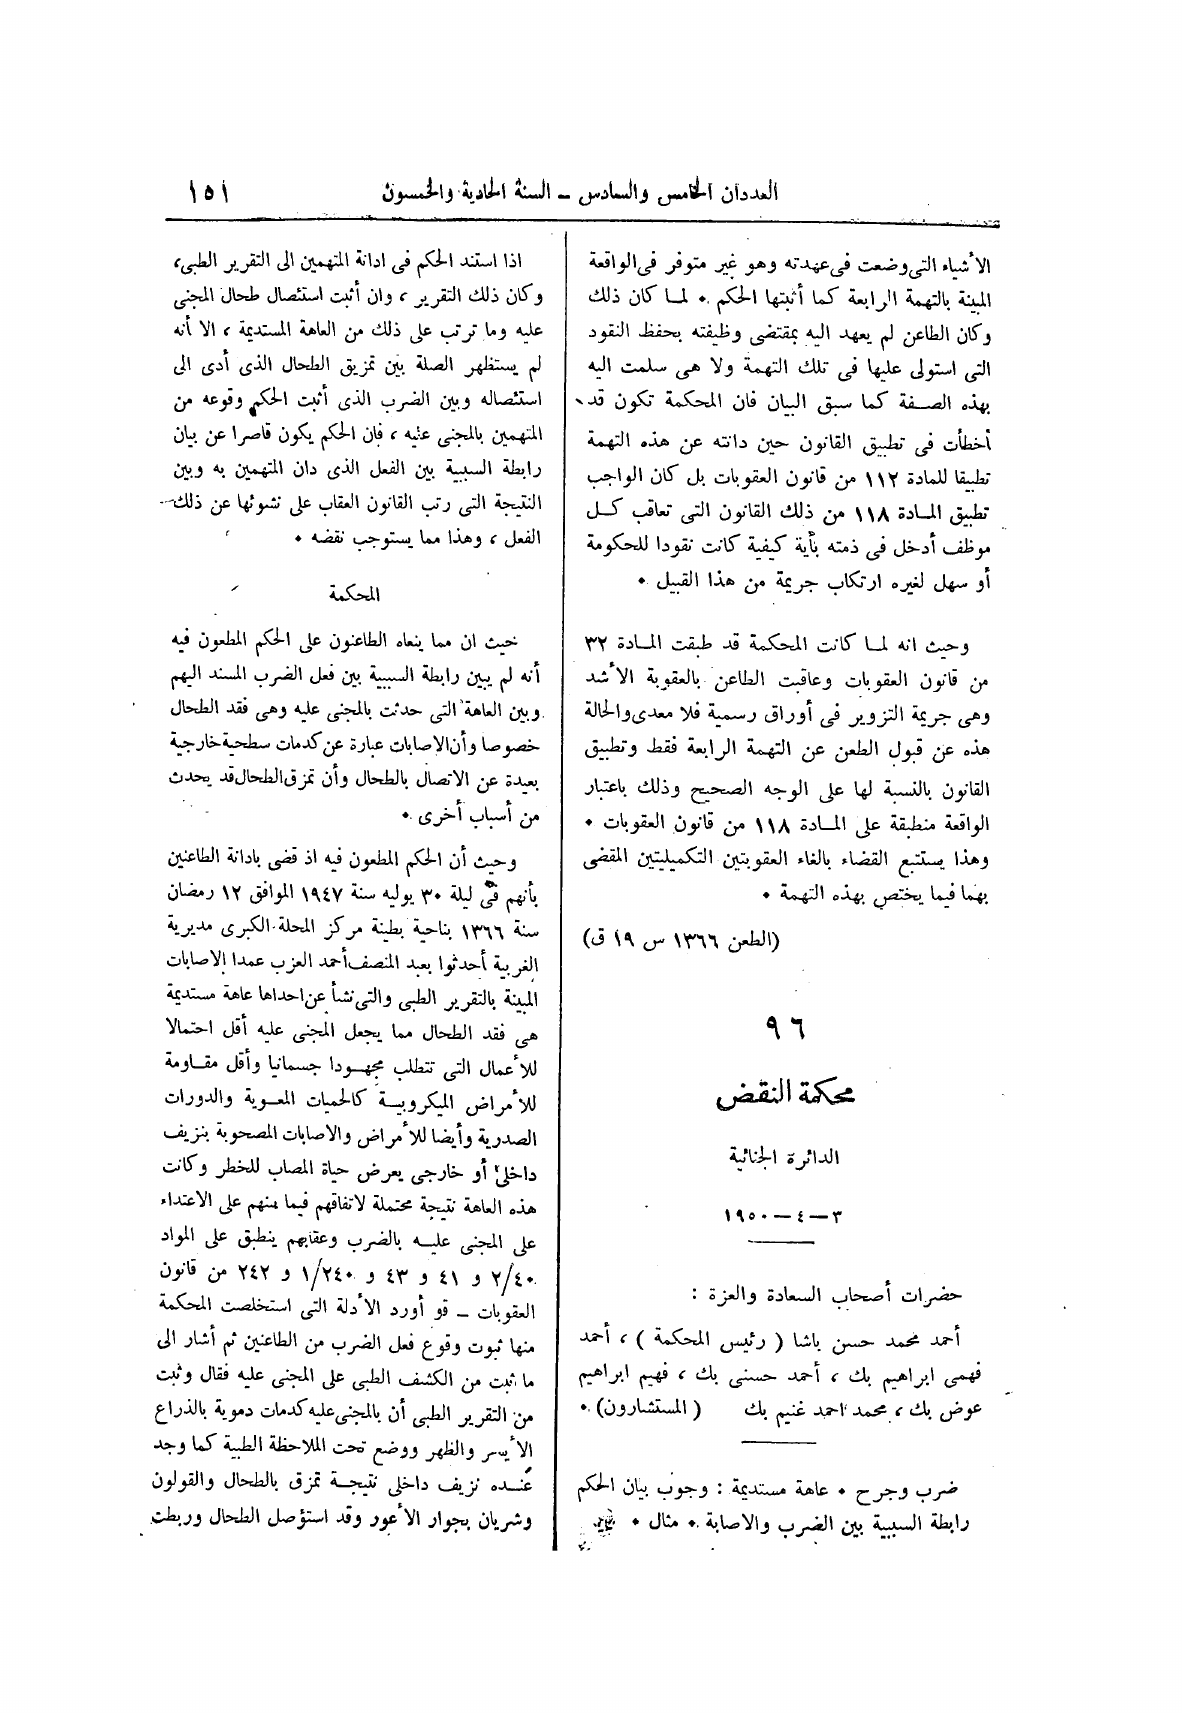 العددان الخامس والسادس – السنة الحادية والخمسون ١٥١
الأشياء التى وضعت فى عهدته وهو غير متوفر فى الواقعة
المبينة بالتهمة الرابعة كما أثبتها الحكم . لما كان ذلك
وكان الطاعن لم يعهد اليه بمقتضى وظيفته بحفظ النقود
التى استولى عليها فى تلك التهمة ولا هى سلمت اليه
بهذه الصفة كما سبق البيان فان المحكمة تكون قد
أخطأت فى تطبيق القانون حين دانته عن هذه التهمة
تطبيقا للمادة ١١٢ من قانون العقوبات بل كان الواجب
تطبيق المادة ١١٨ من ذلك القانون التى تعاقب كل
موظف أدخل فى ذمته بأية كيفية كانت نقودا للحكومة
أو سهل لغيره ارتكاب جريمة من هذا القبيل .
وحيث انه لما كانت المحكمة قد طبقت المادة ٣٢
من قانون العقوبات وعاقبت الطاعن بالعقوبة الأشد
وهى جريمة التزوير فى أوراق رسمية فلا معدى والحالة
هذه عن قبول الطعن عن التهمة الرابعة فقط وتطبيق
القانون بالنسبة لها على الوجه الصحيح وذلك باعتبار
الواقعة منطبقة على المادة ١١٨ من قانون العقوبات .
وهذا يستتبع القضاء بالغاء العقوبتين التكميليتين المقضى
بهما فيما يختص بهذه التهمة .
(الطعن ١٣٦٦ س ١٩ ق)
٩٦
محكمة النقض
الدائرة الجنائية
٣ – ٤ – ١٩٥٠
حضرات أصحاب السعادة والعزة :
أحمد محمد حسن باشا ( رئيس المحكمة ) ، أحمد
فهمى ابراهيم بك ، أحمد حسنى بك ، فهيم ابراهيم
عوض بك ، محمد احمد غنيم بك ( المستشارون) .
ضرب وجرح . عاهة مستديمة : وجوب بيان الحكم
رابطة السببية بين الضرب والاصابة . مثال .
اذا استند الحكم فى ادانة المتهمين الى التقرير الطبى،
وكان ذلك التقرير ، وان أثبت استئصال طحال المجنى
عليه وما ترتب على ذلك من العاهة المستديمة ، الا أنه
لم يستظهر الصلة بين تمزيق الطحال الذى أدى الى
استئصاله وبين الضرب الذى أثبت الحكم وقوعه من
المتهمين بالمجنى عليه ، فان الحكم يكون قاصرا عن بيان
رابطة السببية بين الفعل الذى دان المتهمين به وبين
النتيجة التى رتب القانون العقاب على نشوئها عن ذلك
الفعل ، وهذا مما يستوجب نقضه .
المحكمة
حيث ان مما ينعاه الطاعنون على الحكم المطعون فيه
أنه لم يبين رابطة السببية بين فعل الضرب المسند اليهم
وبين العاهة التى حدثت بالمجنى عليه وهى فقد الطحال
خصوصا وأن الاصابات عبارة عن كدمات سطحية خارجية
بعيدة عن الاتصال بالطحال وأن تمزق الطحال قد يحدث
من أسباب أخرى .
وحيث أن الحكم المطعون فيه اذ قضى بادانة الطاعنين
بأنهم فى ليلة ٣٠ يوليه سنة ١٩٤٧ الموافق ١٢ رمضان
سنة ١٣٦٦ بناحية بطينة مركز المحلة الكبرى مديرية
الغربية أحدثوا بعبد المنصف أحمد العزب عمدا الاصابات
المبينة بالتقرير الطبى والتى نشأ عن احداها عاهة مستديمة
هى فقد الطحال مما يجعل المجنى عليه أقل احتمالا
للأعمال التى تتطلب مجهودا جسمانيا وأقل مقاومة
للأمراض الميكروبية كالحميات المعوية والدورات
الصدرية وأيضا للأمراض والاصابات المصحوبة بنزيف
داخلى أو خارجى يعرض حياة المصاب للخطر وكانت
هذه العاهة نتيجة محتملة لاتفاقهم فيما بينهم على الاعتداء
على المجنى عليه بالضرب وعقابهم ينطبق على المواد
٢/٤٠ و ٤١ و ٤٣ و ١/٢٤٠ و ٢٤٢ من قانون
العقوبات – قو أورد الأدلة التى استخلصت المحكمة
منها ثبوت وقوع فعل الضرب من الطاعنين ثم أشار الى
ما ثبت من الكشف الطبى على المجنى عليه فقال وثبت
من التقرير الطبى أن بالمجنى عليه كدمات دموية بالذراع
الأيسر والظهر ووضع تحت الملاحظة الطبية كما وجد
عنده نزيف داخلى نتيجة تمزق بالطحال والقولون
وشريان بجوار الأعور وقد استؤصل الطحال وربطت